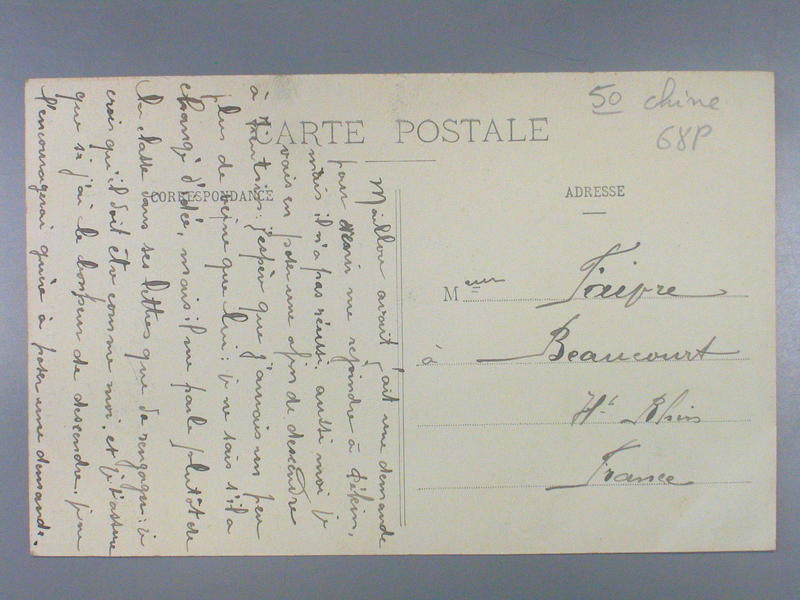 50 chine
68P
CARTE POSTALE
CORRESPONDANCE
ADRESSE
Maillou avait fait une demande
pour venir me rejoindre à Pékin,
mais il n'a pas réussi. aussi moi je
vais en poser une afin de descendre
à Tientsin; j'espère que j'aurais un peu
plus de veine que lui: je ne sais s'il a
changé d'idée, mais il me parle plutôt de
la classe dans ses lettres que de rengager: je
crois qu'il doit être comme moi. et je t'assure
que si j'ai le bonheur de descendre, je ne
l'encouragerai guère à poser une demande.
Meur Faivre
à Beaucourt
Ht Rhin
France